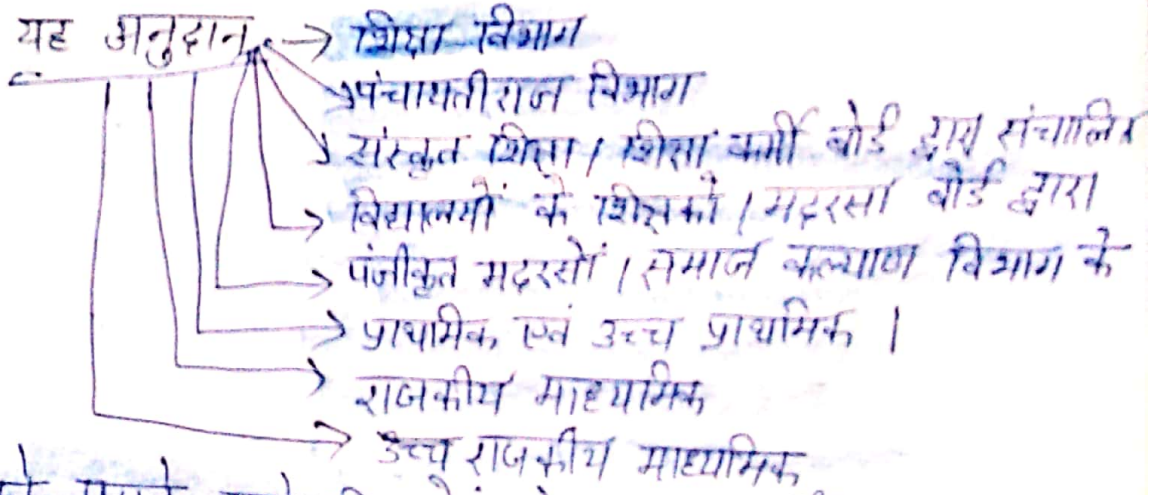 यह अनुदान → शिक्षा विभाग
पंचायतीराज विभाग
संस्कृत शिक्षा / शिक्षा कर्मी बोर्ड द्वारा संचालित
विद्यालयों के शिक्षकों / मदरसा बोर्ड द्वारा
पंजीकृत मदरसों / समाज कल्याण विभाग के
प्राथमिक एवं उच्च प्राथमिक ।
राजकीय माध्यमिक
उच्च राजकीय माध्यमिक